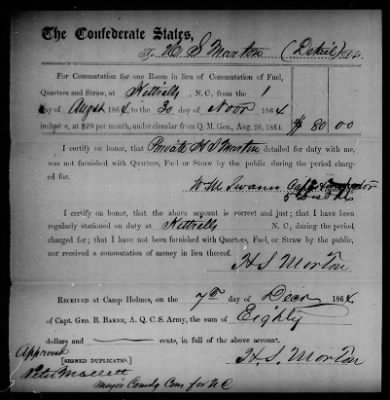 The Confederate States,
To H S Morton (Detail) Dr.
For Commutation for one Room in lieu of Commutation of Fuel,
Quarters and Straw, at Kittrells, N. C., from the 1
day of Augst 1864 to the 30 day of Novr 1864
inclusive, at $20 per month, under circular from Q. M. Gen., Aug. 26, 1864. $ 80 00
I certify on honor, that Private H S Morton detailed for duty with me,
was not furnished with Quarters, Fuel or Straw by the public during the period charg-
ed for.
W. M. Swann Capt &
I certify on honor, that the above account is correct and just; that I have been
regularly stationed on duty at Kittrells N. C., during the period
charged for; that I have not been furnished with Quarters, Fuel, or Straw by the public,
nor received a commutation of money in lieu thereof.
H S Morton
Received at Camp Holmes, on the 7th day of Decr 1864,
of Capt. Geo. B. Baker, A. Q. C. S. Army, the sum of Eighty
dollars and — cents, in full of the above account.
Approved
[SIGNED DUPLICATES.] H. S. Morton
Peter Mallett
Major Comdg Cons for NC